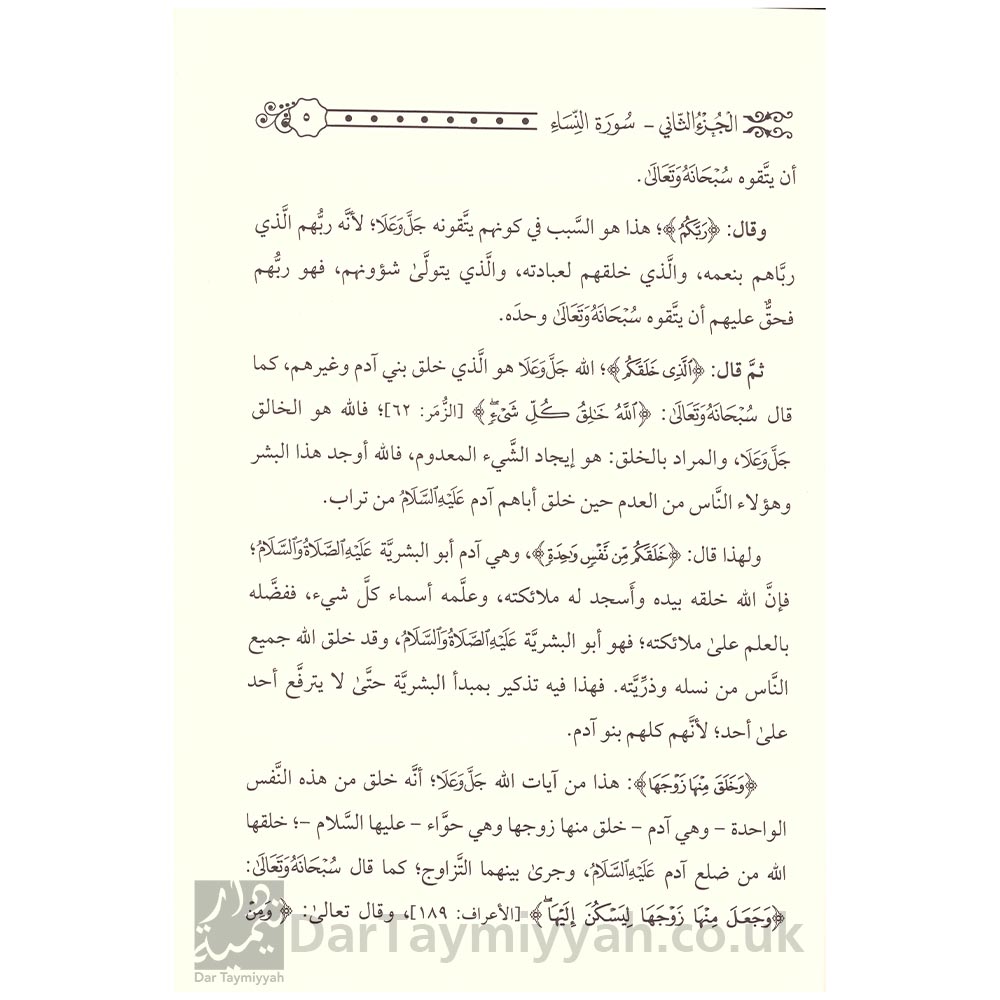 الجُزْءُ الثَّانِي – سُورَة النِّسَاءِ ٥
أن يتَّقوه سُبْحَانَهُ وَتَعَالَىٰ.
وقال: ﴿رَبَّكُمُ﴾؛ هذا هو السَّبب في كونهم يتَّقونه جَلَّ وَعَلَا؛ لأنَّه ربُّهم الَّذي
ربَّاهم بنعمه، والَّذي خلقهم لعبادته، والَّذي يتولَّىٰ شؤونهم، فهو ربُّهم
فحقٌّ عليهم أن يتَّقوه سُبْحَانَهُ وَتَعَالَىٰ وحدَه.
ثمَّ قال: ﴿ٱلَّذِى خَلَقَكُم﴾؛ الله جَلَّ وَعَلَا هو الَّذي خلق بني آدم وغيرهم، كما
قال سُبْحَانَهُ وَتَعَالَىٰ: ﴿ٱللَّهُ خَٰلِقُ كُلِّ شَىْءٍۖ﴾ [الزُّمَر: ٦٢]؛ فالله هو الخالق
جَلَّ وَعَلَا، والمراد بالخلق: هو إيجاد الشَّيء المعدوم، فالله أوجد هذا البشر
وهؤلاء النَّاس من العدم حين خلق أباهم آدم عَلَيْهِ السَّلَامُ من تراب.
ولهذا قال: ﴿خَلَقَكُم مِّن نَّفْسٍ وَٰحِدَةٍ﴾، وهي آدم أبو البشريَّة عَلَيْهِ الصَّلَاةُ وَالسَّلَامُ؛
فإنَّ الله خلقه بيده وأَسجد له ملائكته، وعلَّمه أسماء كلَّ شيء، ففضَّله
بالعلم علىٰ ملائكته؛ فهو أبو البشريَّة عَلَيْهِ الصَّلَاةُ وَالسَّلَامُ، وقد خلق الله جميع
النَّاس من نسله وذرِّيَّته. فهذا فيه تذكير بمبدأ البشريَّة حتَّىٰ لا يترفَّع أحد
علىٰ أحد؛ لأنَّهم كلهم بنو آدم.
﴿وَخَلَقَ مِنْهَا زَوْجَهَا﴾: هذا من آيات الله جَلَّ وَعَلَا؛ أنَّه خلق من هذه النَّفس
الواحدة – وهي آدم – خلق منها زوجها وهي حوَّاء – عليها السَّلام –؛ خلقها
الله من ضلع آدم عَلَيْهِ السَّلَامُ، وجرىٰ بينهما التَّزاوج؛ كما قال سُبْحَانَهُ وَتَعَالَىٰ:
﴿وَجَعَلَ مِنْهَا زَوْجَهَا لِيَسْكُنَ إِلَيْهَاۖ﴾ [الأعراف: ١٨٩]، وقال تعالىٰ: ﴿وَمِنْ
دار تيمية
Dar Taymiyyah
DarTaymiyyah.co.uk